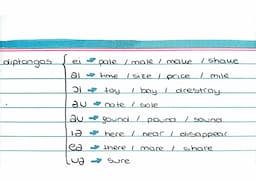 diptongos
ei → pale / male / make / shake
ai → time / size / price / mile
ɔi → toy / boy / drestroy
əu → note / sole
au → gound / pound / sound
iə → here / near / disappear
eə → there / mare / share
uə → sure